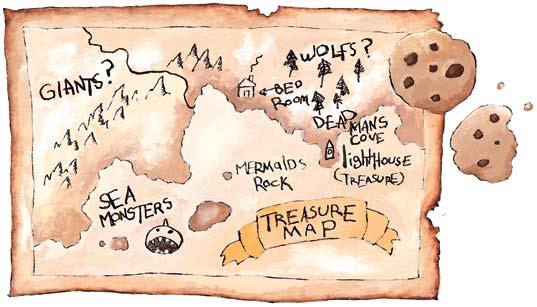 GIANTS?
WOLFS?
←BED
ROOM
DEAD
MANS
COVE
lighTHOUSE
(TREASURE)
MERMAIDS
ROCK
SEA
MONSTERS
TREASURE
MAP